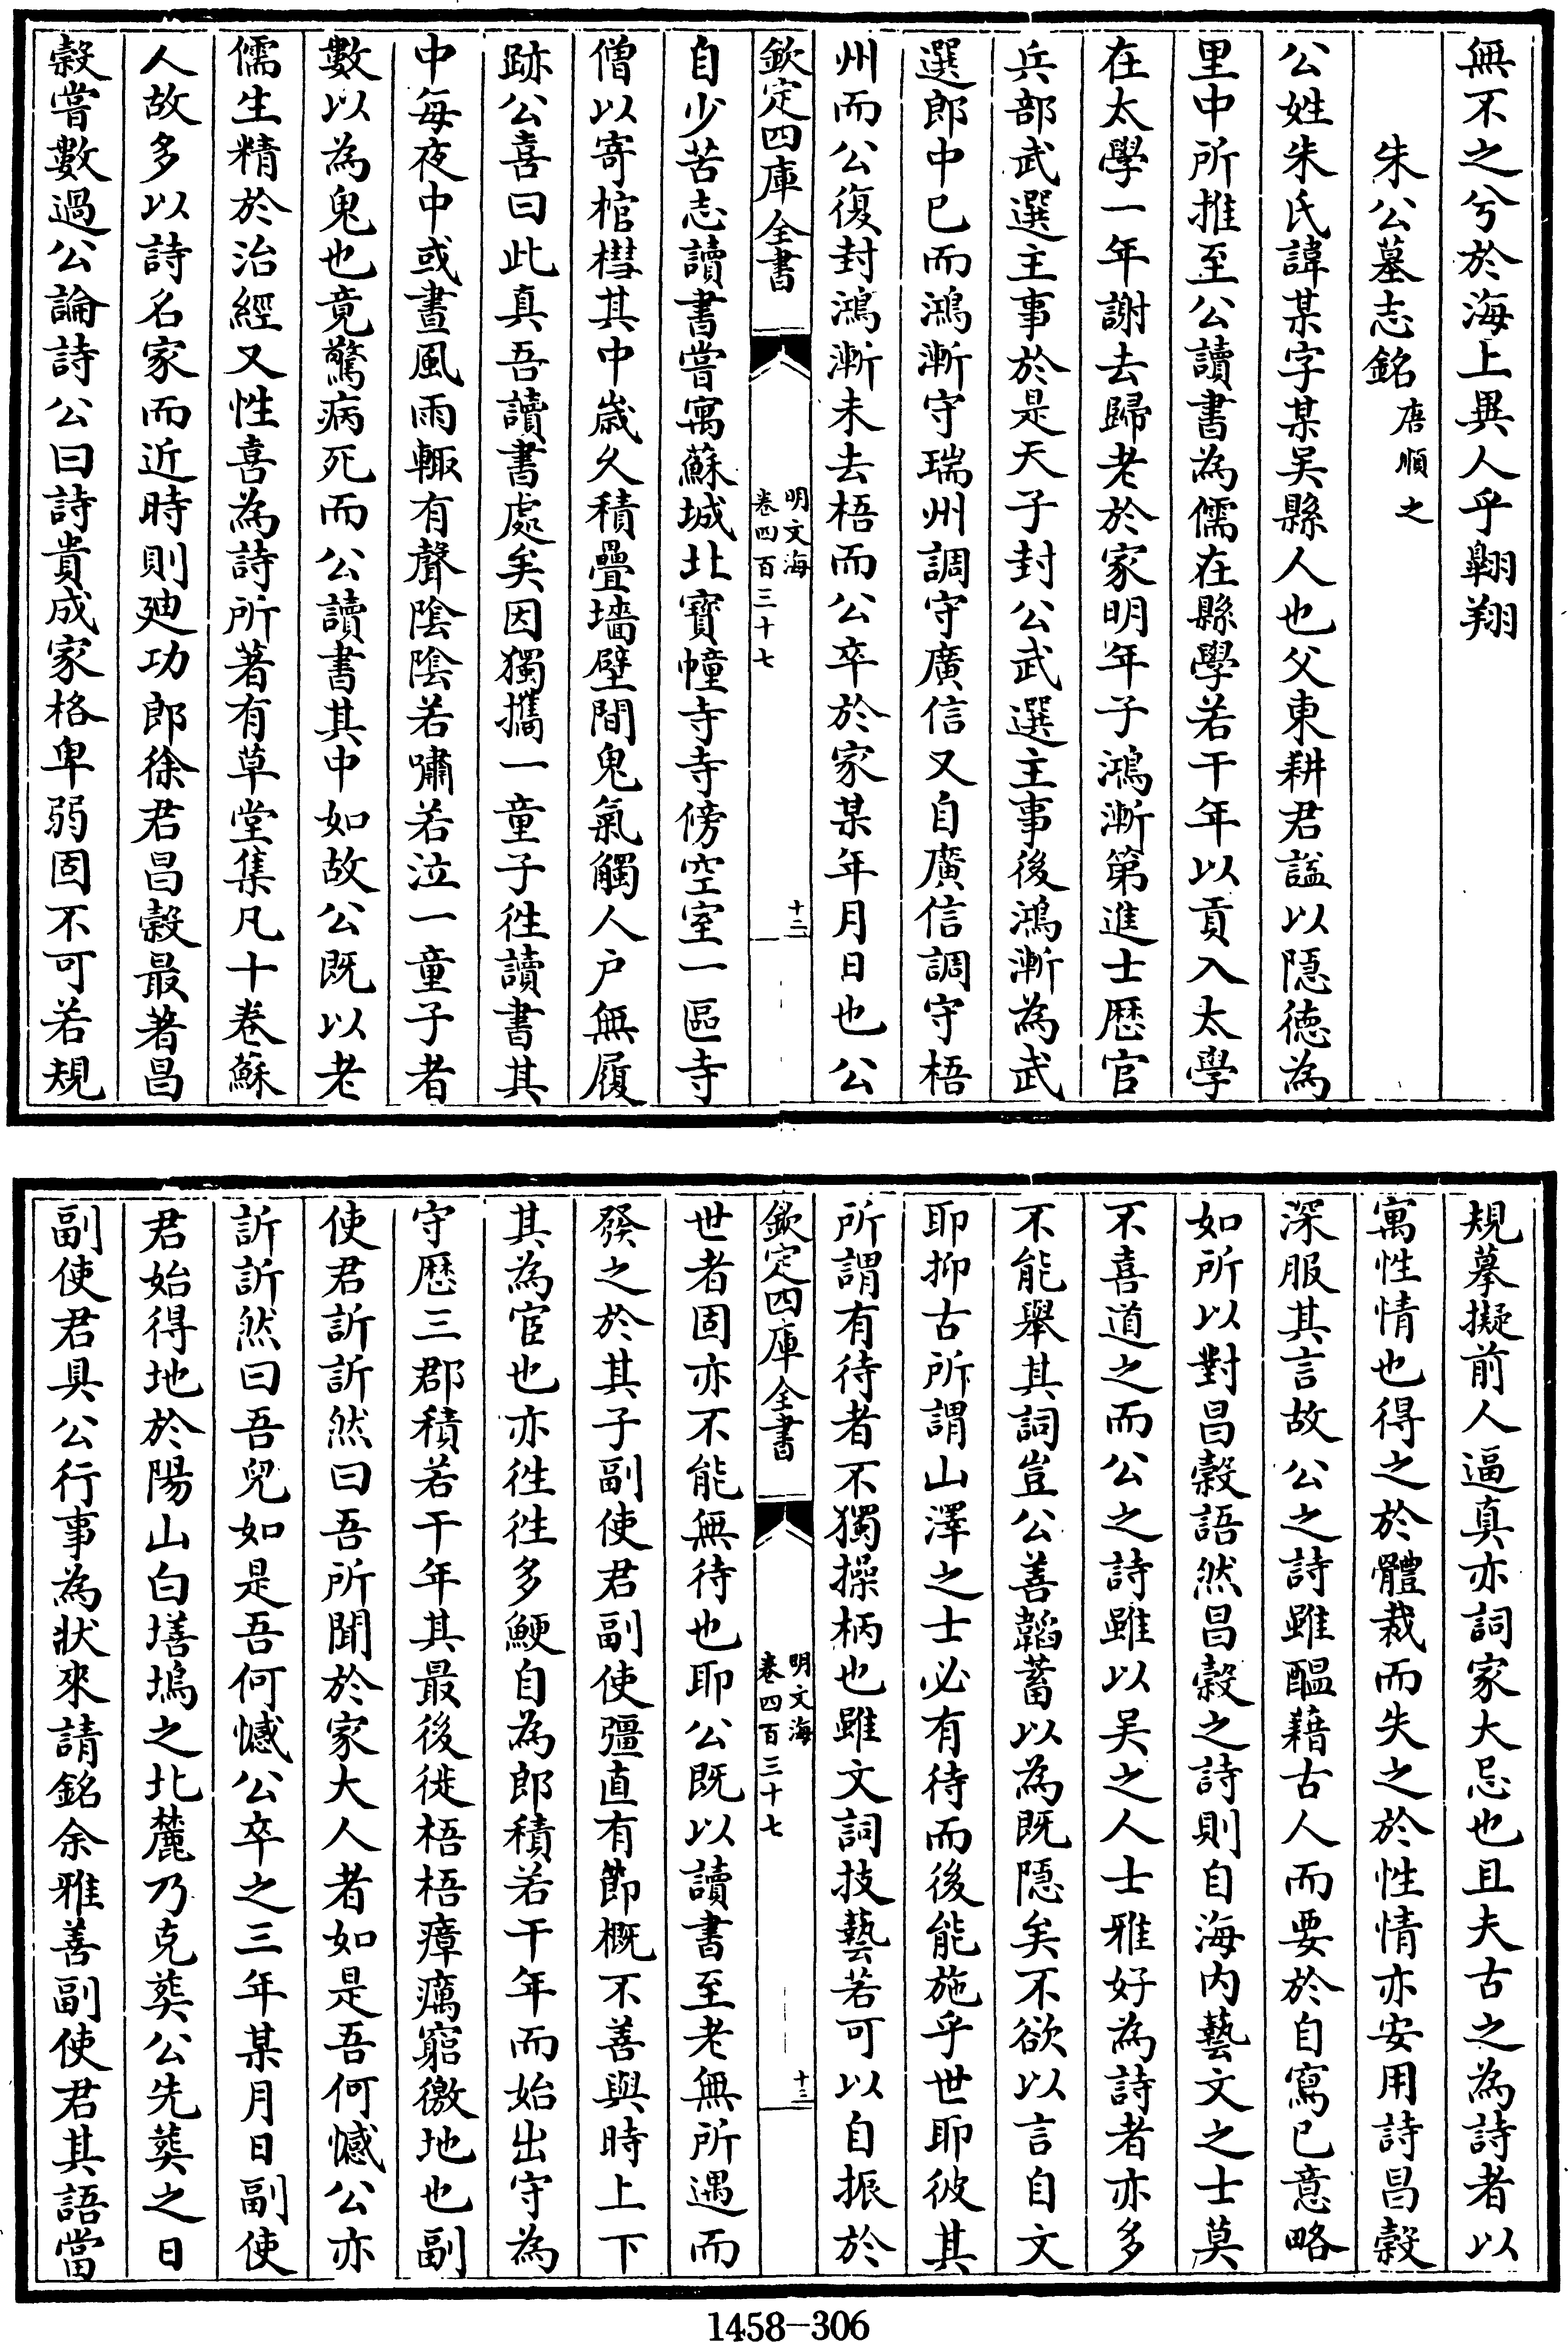 無不之兮於海上異人乎翺翔
朱公墓志銘 唐順之
公姓朱氏諱某字某吴縣人也父東耕君謚以隠徳為
里中所推至公讀書為儒在縣學若干年以貢入太學
在太學一年謝去歸老於家明年子鴻漸第進士歴官
兵部武選主事於是天子封公武選主事後鴻漸為武
選郎中已而鴻漸守瑞州調守廣信又自廣信調守梧
州而公復封鴻漸未去梧而公卒於家某年月日也公
欽定四庫全書
明文海
卷四百三十七
十二
自少苦志讀書嘗寓蘇城北寳幢寺寺傍空室一區寺
僧以寄棺槥其中嵗久積疊墻壁間鬼氣觸人户無履
跡公喜曰此真吾讀書處矣因獨攜一童子徃讀書其
中每夜中或晝風雨輙有聲陰陰若嘯若泣一童子者
數以為鬼也竟驚病死而公讀書其中如故公既以老
儒生精於治經又性喜為詩所著有草堂集凡十巻蘇
人故多以詩名家而近時則廸功郎徐君昌榖最著昌
榖嘗數過公論詩公曰詩貴成家格卑弱固不可若規
規摹擬前人逼真亦詞家大忌也且夫古之為詩者以
寓性情也得之於體裁而失之於性情亦安用詩昌榖
深服其言故公之詩雖醖藉古人而要於自寫已意略
如所以對昌榖語然昌榖之詩則自海内藝文之士莫
不喜道之而公之詩雖以吴之人士雅好為詩者亦多
不能舉其詞豈公善韜蓄以為既隠矣不欲以言自文
耶抑古所謂山澤之士必有待而後能施乎世耶彼其
所謂有待者不獨操柄也雖文詞技藝若可以自振於
欽定四庫全書
明文海
卷四百三十七
十三
世者固亦不能無待也耶公既以讀書至老無所遇而
發之於其子副使君副使彊直有節概不善與時上下
其為宦也亦徃徃多鯁自為郎積若干年而始出守為
守歴三郡積若干年其最後徙梧梧瘴癘窮徼地也副
使君訢訢然曰吾所聞於家大人者如是吾何憾公亦
訢訢然曰吾兒如是吾何憾公卒之三年某月日副使
君始得地於陽山白墡塢之北麓乃克葬公先葬之日
副使君具公行事為狀來請銘余雅善副使君其語當
1458—306